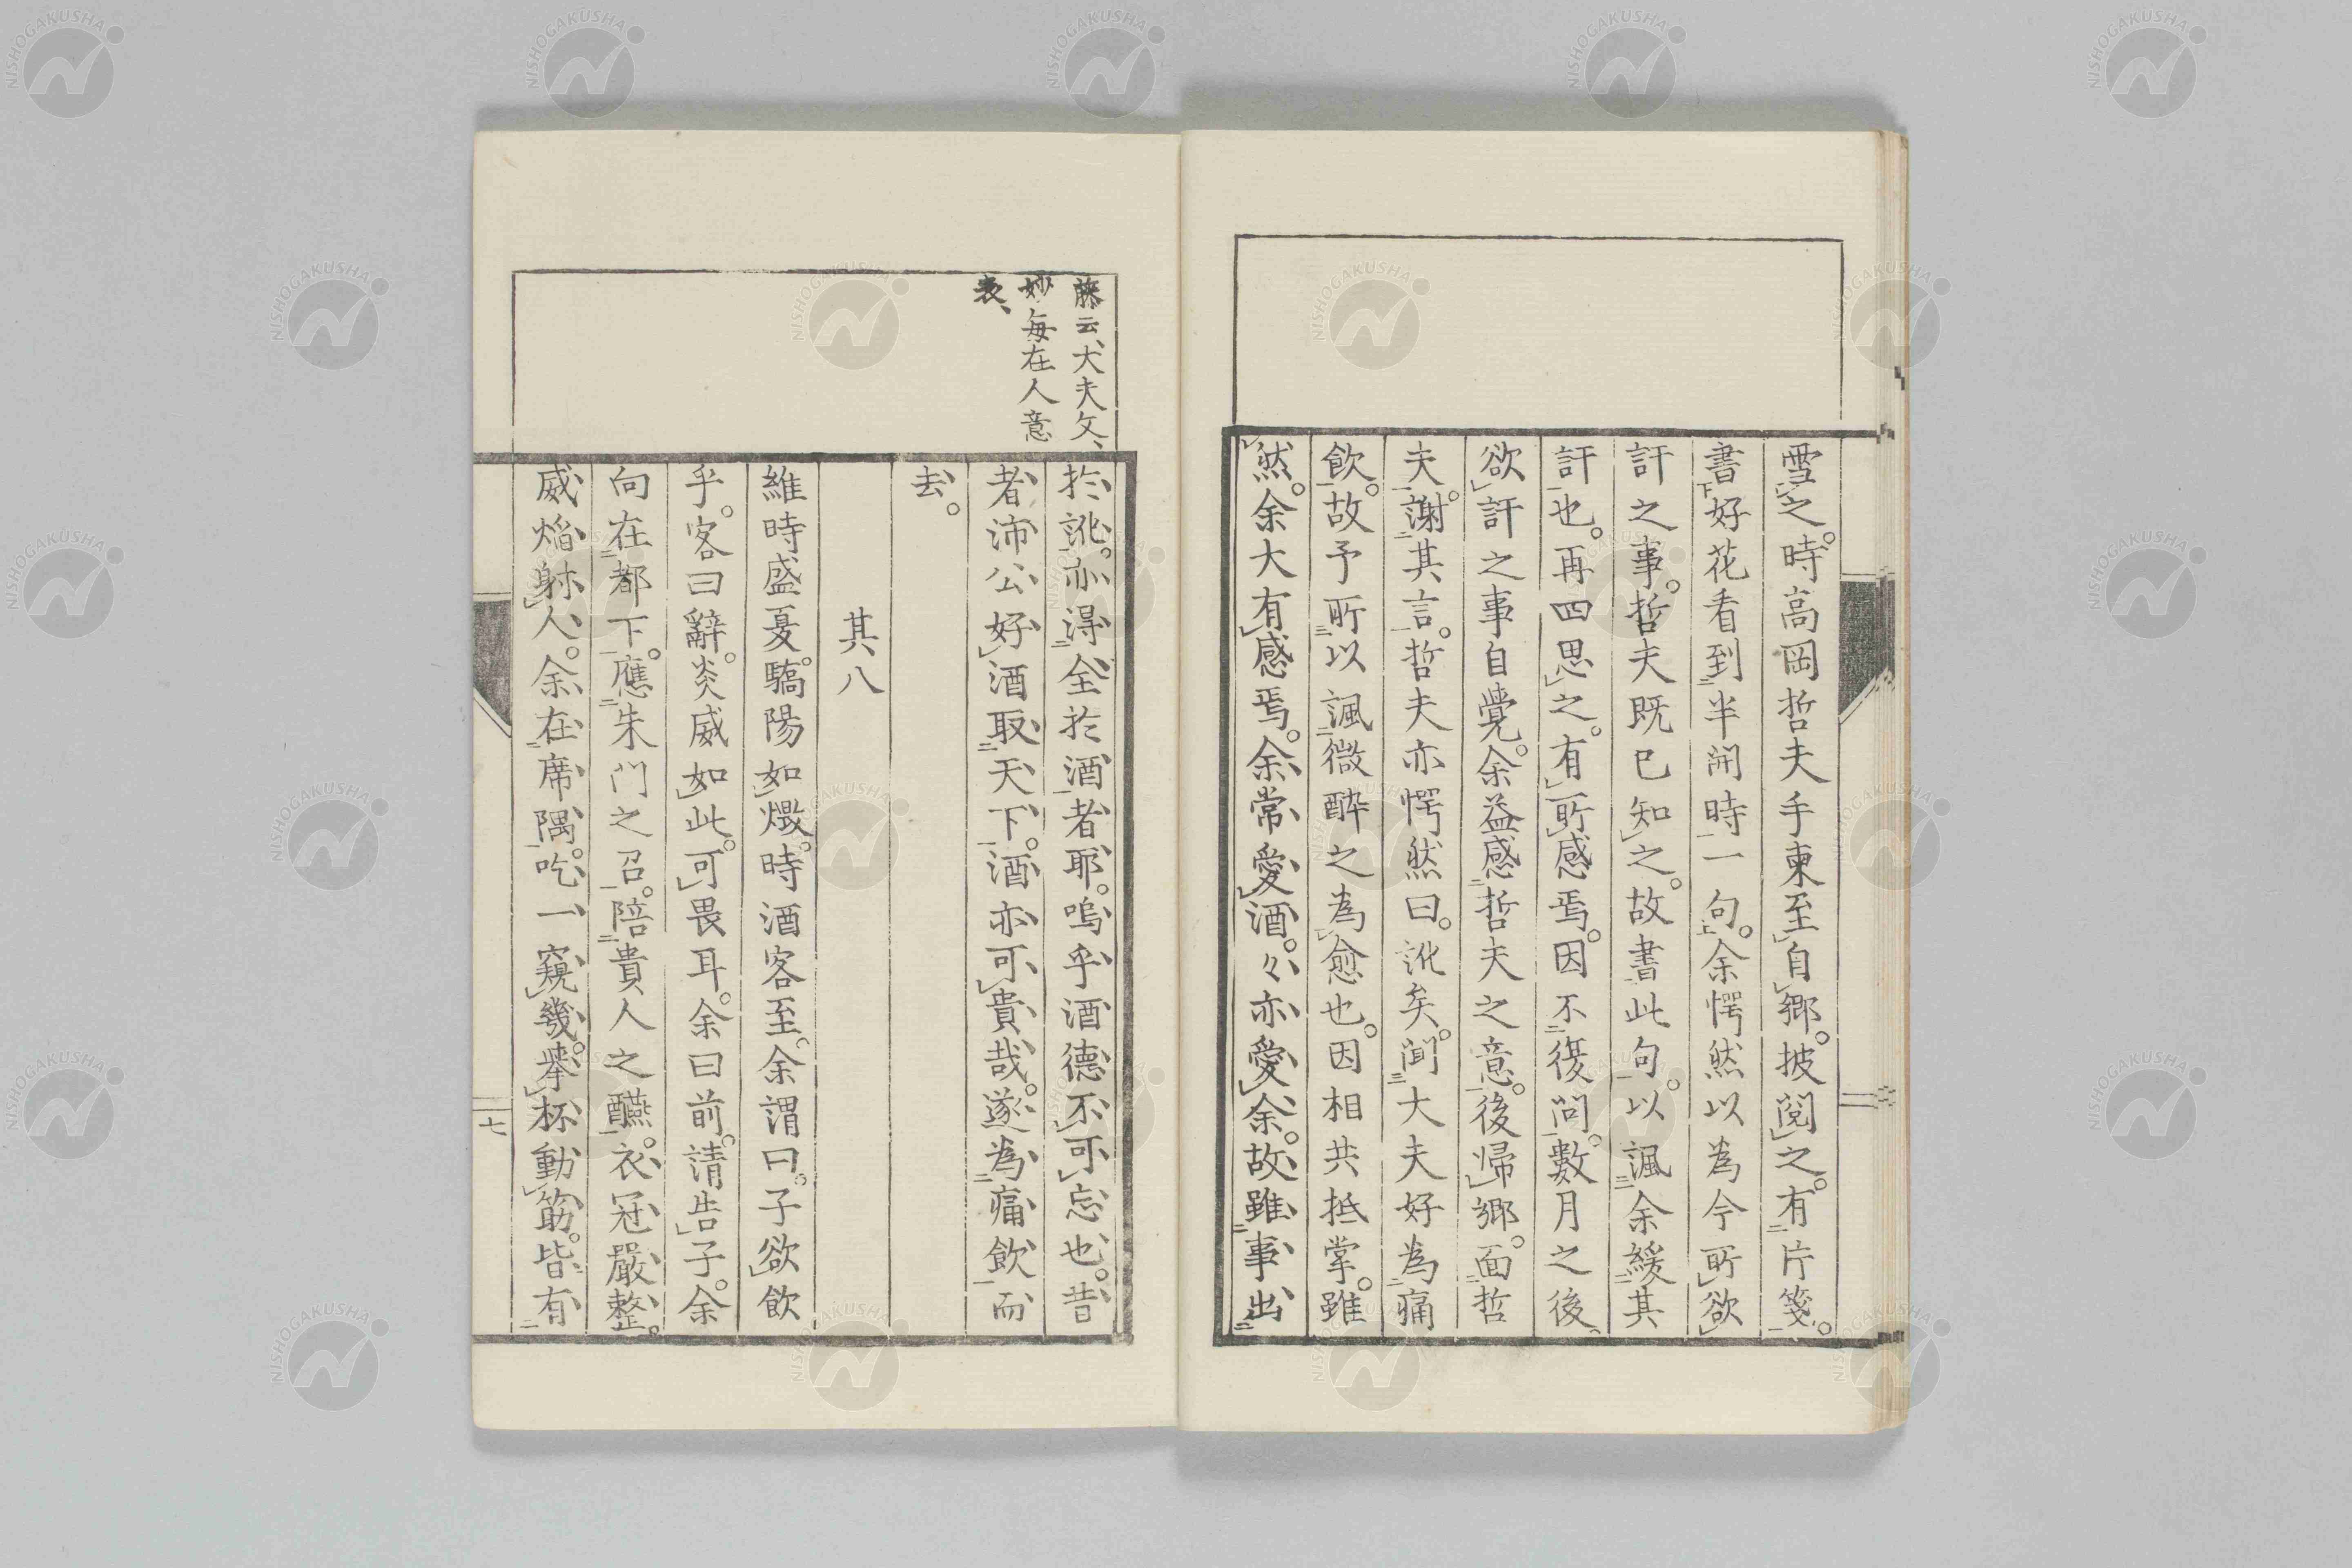 雪之。時高岡哲夫手柬至自郷。披閲之。有片箋。
書好花看到半開時一句。余愕然以為今所欲
訐之事。哲夫既已知之。故書此句。以諷余緩其
訐也。再四思之。有所感焉。因不復問。數月之後、
欲訐之事自覺。余益感哲夫之意。後帰郷。面哲
夫。謝其言。哲夫亦愕然曰。訛矣。聞大夫好為痛
飲。故予所以諷微酔之為愈也。因相共抵掌。雖
然。余大有感焉。余常愛酒。々亦愛余。故雖事出
藤云、大夫文、
妙每在人意
表、
於訛。亦得全於酒者耶。嗚乎酒德不可忘也。昔
者沛公好酒取天下。酒亦可貴哉。遂為痛飲而
去。
其八
維時盛夏。驕陽如燬。時酒客至。余謂曰。子欲飲
乎。客曰辭。炎威如此。可畏耳。余曰前。請告子。余
向在都下。應朱門之召。陪貴人之醼。衣冠嚴整。
威焔射人。余在席隅。吃一窺幾。挙杯動筯。皆有
七
NISHOGAKUSHA